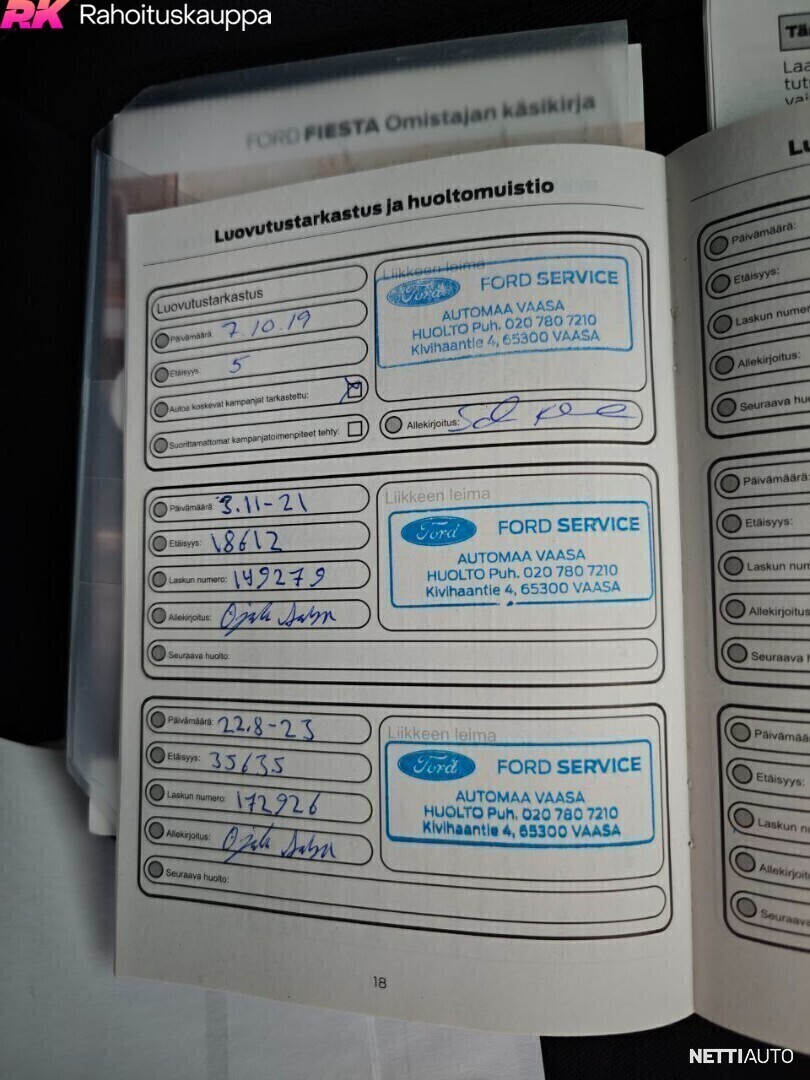 RK Rahoituskauppa
FORD FIESTA Omistajan käsikirja
Luovutustarkastus ja huoltomuistio
Luovutustarkastus
Päivämäärä: 7.10.19
Etäisyys: 5
Autoa koskevat kampanjat tarkastettu:
Suorittamattomat kampanjatoimenpiteet tehty:
Liikkeen leima
Ford FORD SERVICE
AUTOMAA VAASA
HUOLTO Puh. 020 780 7210
Kivihaantie 4, 65300 VAASA
Allekirjoitus:
Päivämäärä: 3.11-21
Etäisyys: 18612
Laskun numero: 149279
Allekirjoitus:
Seuraava huolto:
Liikkeen leima
Ford FORD SERVICE
AUTOMAA VAASA
HUOLTO Puh. 020 780 7210
Kivihaantie 4, 65300 VAASA
Päivämäärä: 22.8-23
Etäisyys: 35635
Laskun numero: 172926
Allekirjoitus:
Seuraava huolto:
Liikkeen leima
Ford FORD SERVICE
AUTOMAA VAASA
HUOLTO Puh. 020 780 7210
Kivihaantie 4, 65300 VAASA
18
Päivämäärä:
Etäisyys:
Laskun numer
Allekirjoitus:
Seuraava huo
Päivämäärä:
Etäisyys:
Laskun num
Allekirjoitus:
Seuraava h
Päivämää
Etäisyys:
Laskun n
Allekirjoit
Seuraava
NETTIAUTO